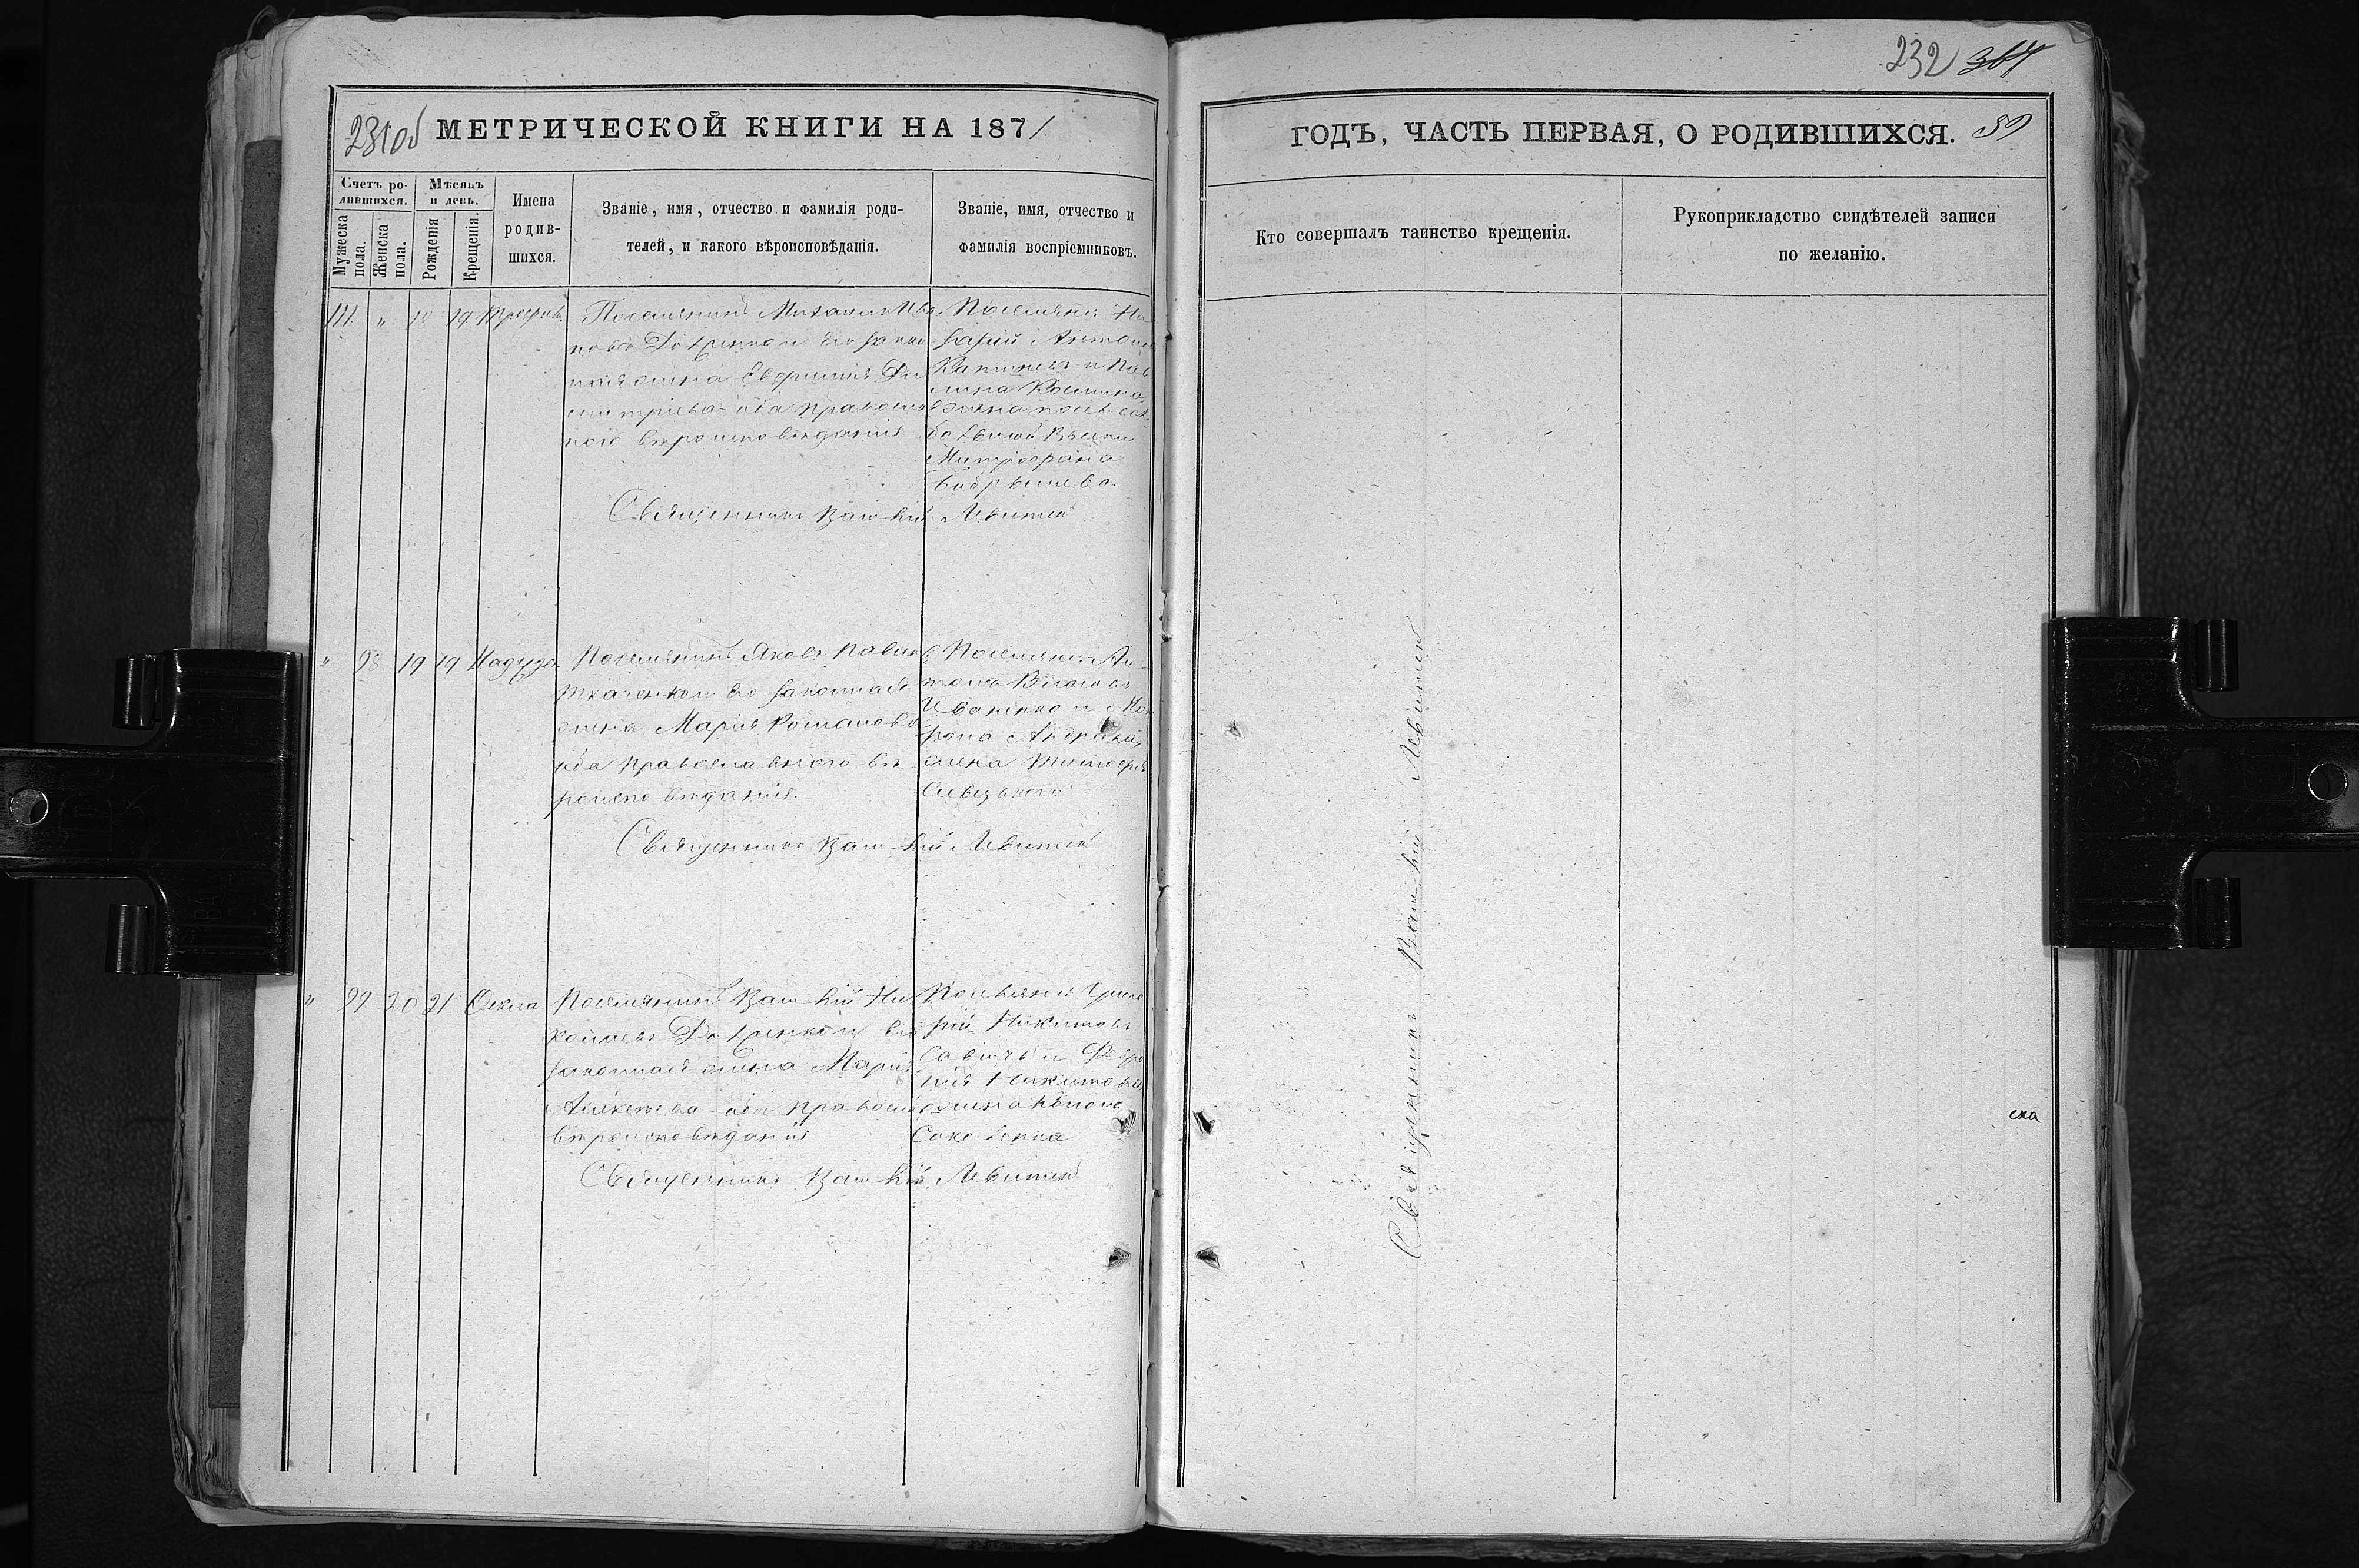 231об МЕТРИЧЕСКОЙ КНИГИ НА 1871
Счетъ ро-
дившихся.
Мужеска
пола.
Женска
пола.
Мѣсяцъ
и день.
Рожденія
Крещенія.
Имена
родив-
шихся.
Званіе, имя, отчество и фамилія роди-
телей, и какого вѣроисповѣданія.
Званіе, имя, отчество и
фамилія воспріемниковъ.
111. " 18 19 Трофимъ
Поселянинъ Михаилъ Ива
новъ и его закон
ная жена Евфимія Ди
митріева оба православ
наго вѣроисповѣданія
Поселяне На
зарій Антоновъ
и Пав
лина
жена
Митрофана
Бобрышева
Священникъ Василій Левитскій
" 98 19 19 Надежда
Поселянинъ Яковъ Павлов
Ткаченко и его законная
жена Марія Романова
оба православнаго вѣ
роисповѣданія.
Поселяне Ан
тонъ Власовъ
Иваненко и Мат
рона Андреева,
жена Тимофея
Священникъ Василій Левитскій
" 99 20 21 Фекла
Поселянинъ Василій Ни
колаевъ и его
законная жена Марія
Алексѣева оба правосл
вѣроисповѣданія
Поселяне Григо
рій Никитовъ
Савичъ и Февро
нія Никитова
жена
Священникъ Василій Левитскій
232 364
ГОДЪ, ЧАСТЬ ПЕРВАЯ, О РОДИВШИХСЯ. 59
Кто совершалъ таинство крещенія.
Рукоприкладство свидѣтелей записи
по желанію.
Священникъ Василій Левитскій
ска